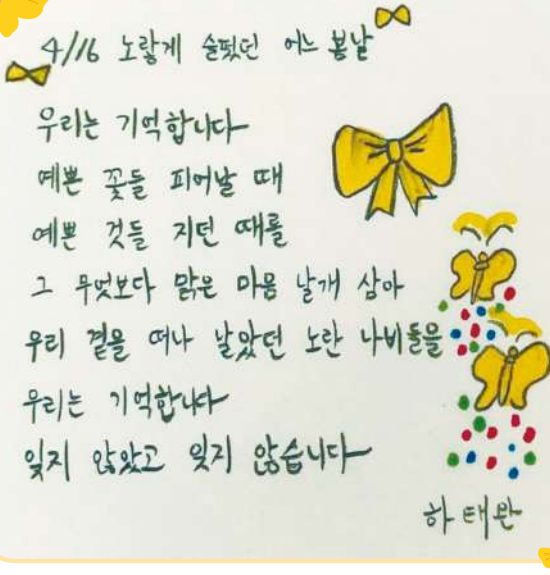 4/16 노랗게 슬펐던 어느 봄날
우리는 기억합니다
예쁜 꽃들 피어날 때
예쁜 것들 지던 때를
그 무엇보다 맑은 마음 날개 삼아
우리 곁을 떠나 날았던 노란 나비들을
우리는 기억합니다
잊지 않았고 잊지 않습니다
하태완